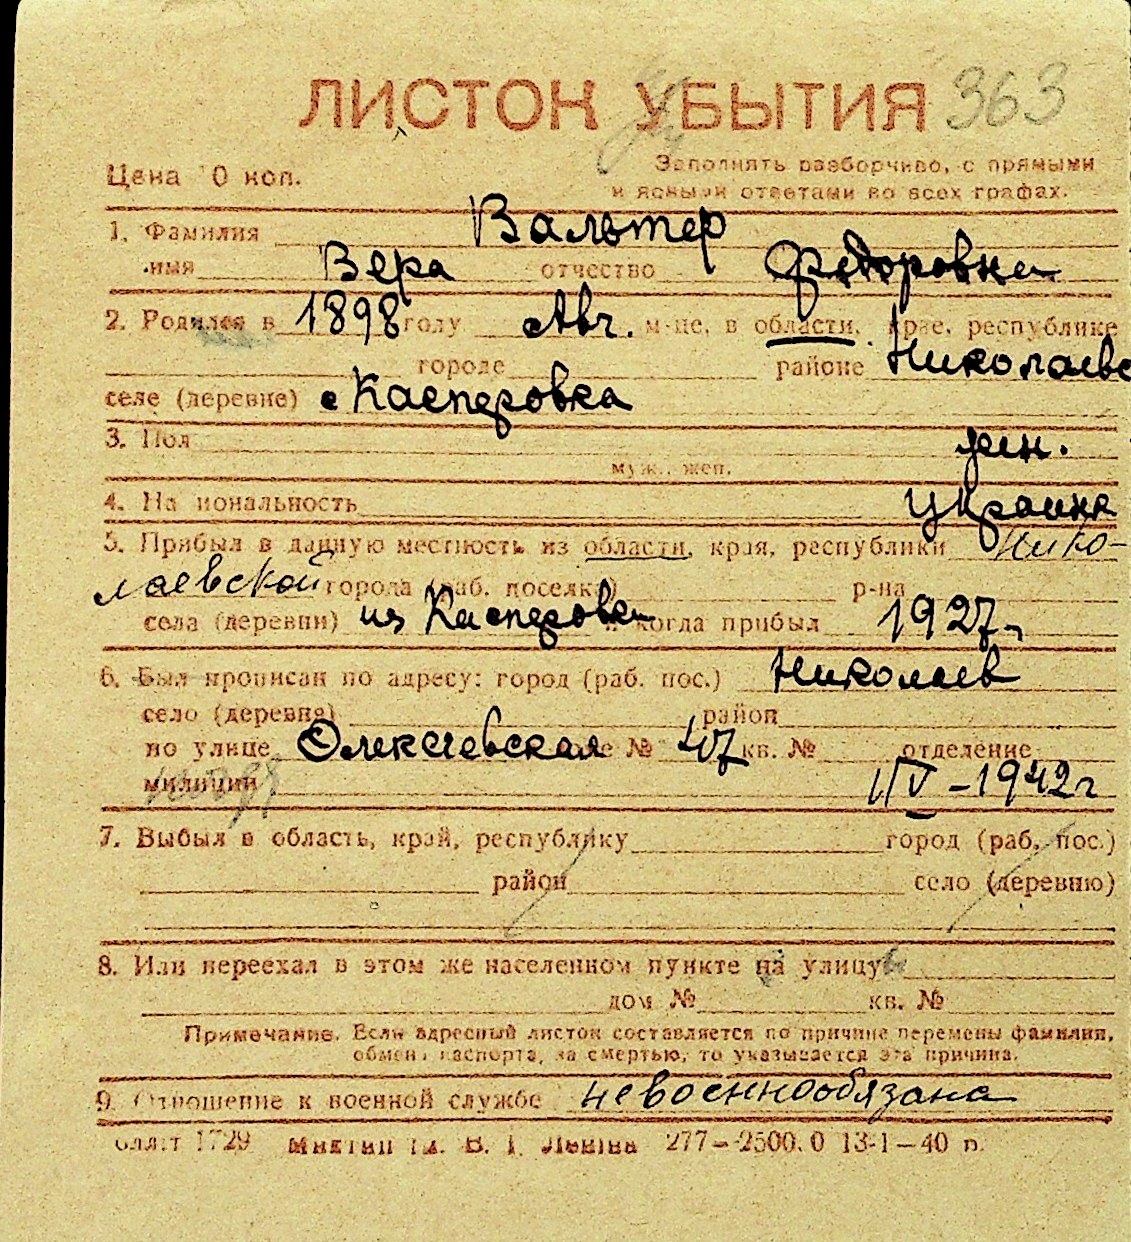 ЛИСТОК УБЫТИЯ 363
Цена 10 коп.
Заполнять разборчиво, с прямыми
и ясными ответами во всех графах.
1. Фамилия Вальтер
имя Вера отчество Федоровна
2. Родился в 1898 году Авг. м-це, в области, крае, республике
городе районе Николаевс
селе (деревне) с Касперовка
3. Пол жен.
муж., жен.
4. Национальность Украинка
5. Прибыл в данную местность из области, края, республики Нико-
лаевской города (раб. поселка) р-на
села (деревни) из Касперовки и когда прибыл 1927 г.
6. Был прописан по адресу: город (раб. пос.) Николаев
село (деревня) район
по улице Олексеевская № 47 кв. № отделение
милиции 1/V – 1942 г
7. Выбыл в область, край, республику город (раб. пос.)
район село (деревню)
8. Или переехал в этом же населенном пункте на улицу
дом № кв. №
Примечание. Если адресный листок составляется по причине перемены фамилии,
обмена паспорта, за смертью, то указывается эта причина.
9. Отношение к военной службе невоеннообязана
1729 277–2500.0 13-1–40 р.